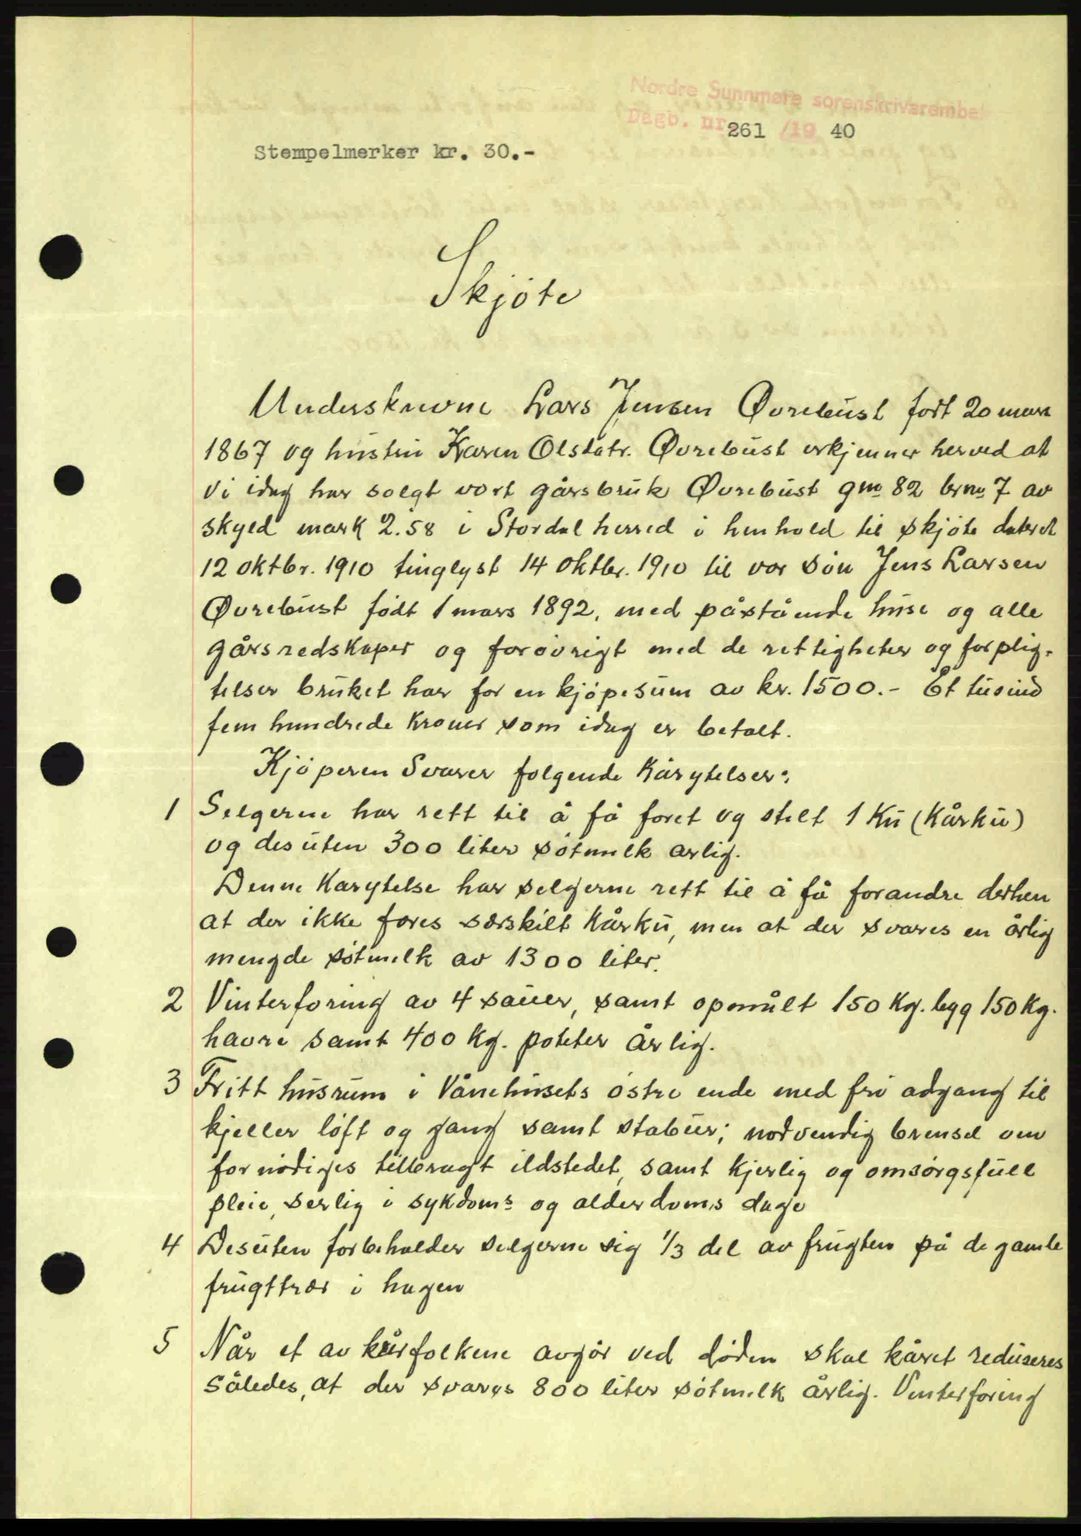 Nordre Sunnmøre sorenskriverembe
Dagb. nr. 261 /19 40
Stempelmerker kr. 30.-
Skjøte
Underskrevne Lars Jensen Øvrebust født 20 mars
1867 og hustru Karen Olsdatr. Øvrebust erkjenner herved at
vi idag har solgt vort gårsbruk Øvrebust gno 82 brno 7 av
skyld mark 2.58 i Stordal herred i henhold til skjøte datert
12 oktbr. 1910 tinglyst 14 oktbr. 1910 til vor søn Jens Larsen
Øvrebust født 1 mars 1892, med påstående huse og alle
gårsredskaper og forøvrigt med de rettigheter og forplig-
telser bruket har for en kjøpesum av kr. 1500.- Et tusind
fem hundrede kroner som idag er betalt.
Kjøperen svarer følgende kårytelser:
1 Selgerne har rett til å få foret og stelt 1 ku (kårku)
og desuten 300 liter søtmelk årlig.
Denne kårytelse har selgerne rett til å få forandre derhen
at der ikke fores særskilt kårku, men at der svares en årlig
mengde søtmelk av 1300 liter.
2 Vinterforing av 4 sauer, samt opmålt 150 kg. bygg 150 kg.
havre samt 400 kg. poteter årlig.
3 Fritt husrum i vånehusets østre ende med fri adgang til
kjeller loft og gang samt stabur; nødvendig brensel om
fornødiges tilbragt ildstedet, samt kjerlig og omsorgsfull
pleie, serlig i sykdoms og alderdoms dage
4 Desuten forbeholder selgerne sig 1/3 del av frugten på de gamle
frugttrær i hagen
5 Når et av kårfolkene avgår ved døden skal kåret reduseres
således, at der svares 800 liter søtmelk årlig. Vinterforing